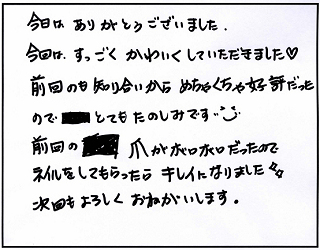 今日は ありがとうございました.
今回は. すっごく かわいくしていただきました♡
前回のも 知り合いから めちゃくちゃ好評だった
ので とても たのしみです
前回の 爪がボロボロだったので
ネイルをしてもらったら キレイになりました
次回もよろしく おねがいします。